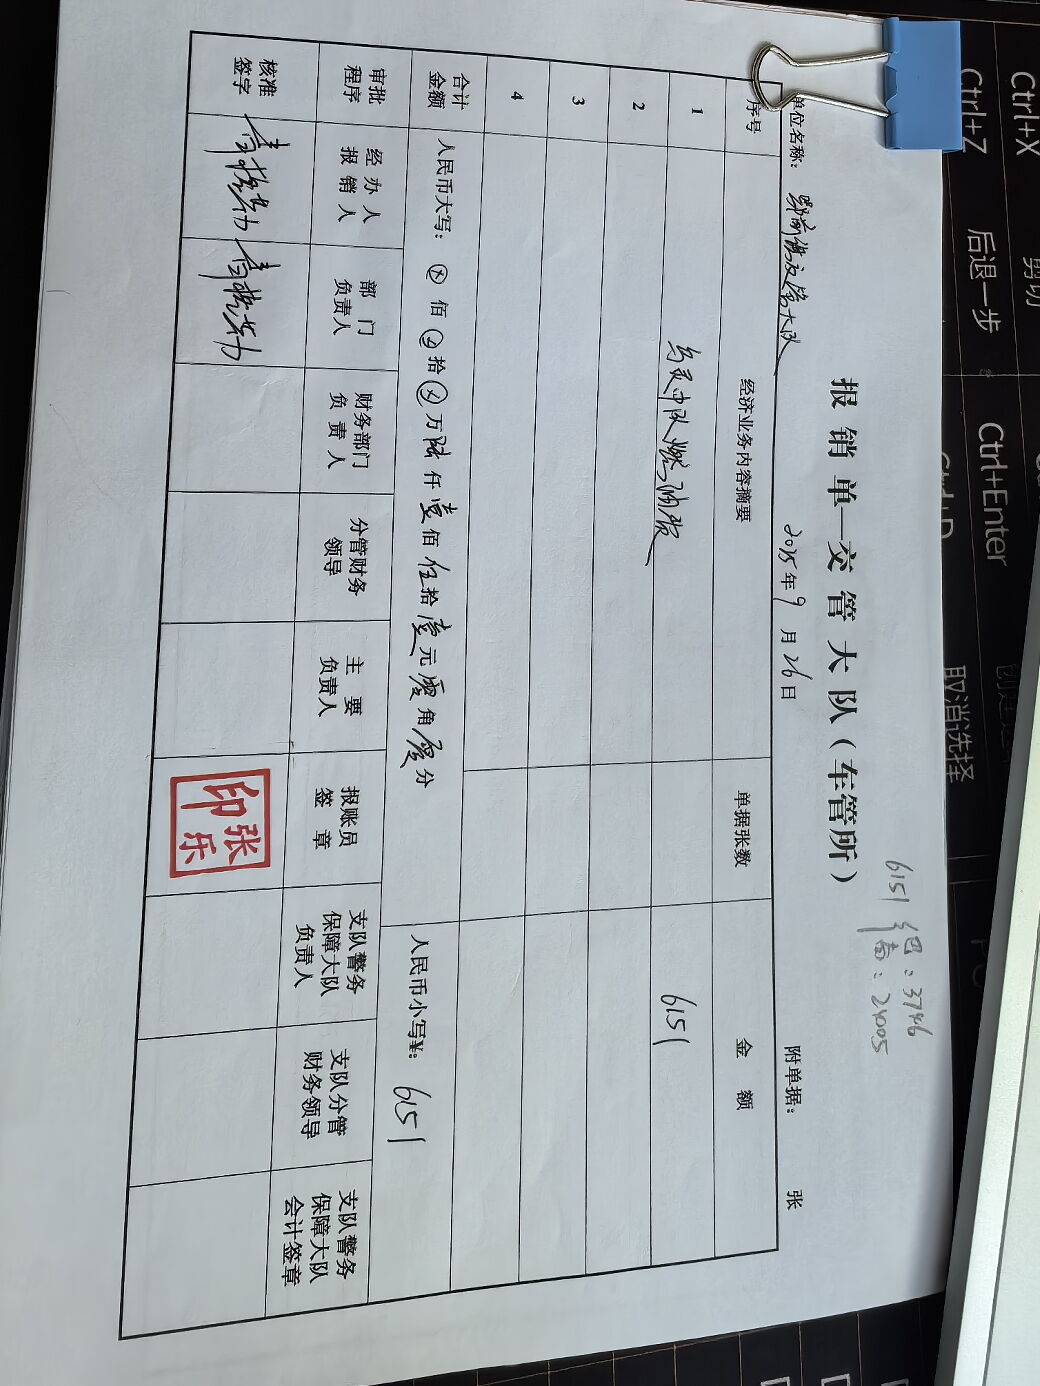 报销单—交管大队（车管所）
6151 包：3746
南：2405
单位名称：鄂前旗交管大队 2025年9月26日 附单据： 张
序号 经济业务内容摘要 单据张数 金额
1 中队燃油费 6151
2
3
4
合计金额 人民币大写：⊗佰⊗拾⊗万陆仟壹佰伍拾壹元零角零分 人民币小写¥：6151
审批程序 经办人报销人 部门负责人 财务部门负责人 分管财务领导 主要负责人 报账员签章 支队警务保障大队负责人 支队分管财务领导 支队警务保障大队会计签章
核准签字
张乐印
Ctrl+X
剪切
Ctrl+Z
后退一步
Ctrl+Enter
Ctrl+D
取消选择